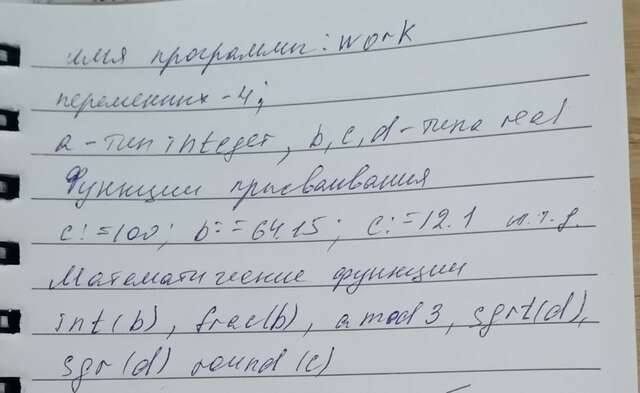 имя программы: work
переменных - 4;
a - тип integer, b, c, d - типа real
Функции присваивания
c:=100; b:=64.15; c:=12.1 и.т.д.
Математические функции
int(b), frac(b), a mod 3, sqrt(d),
sqr(d) round(c)